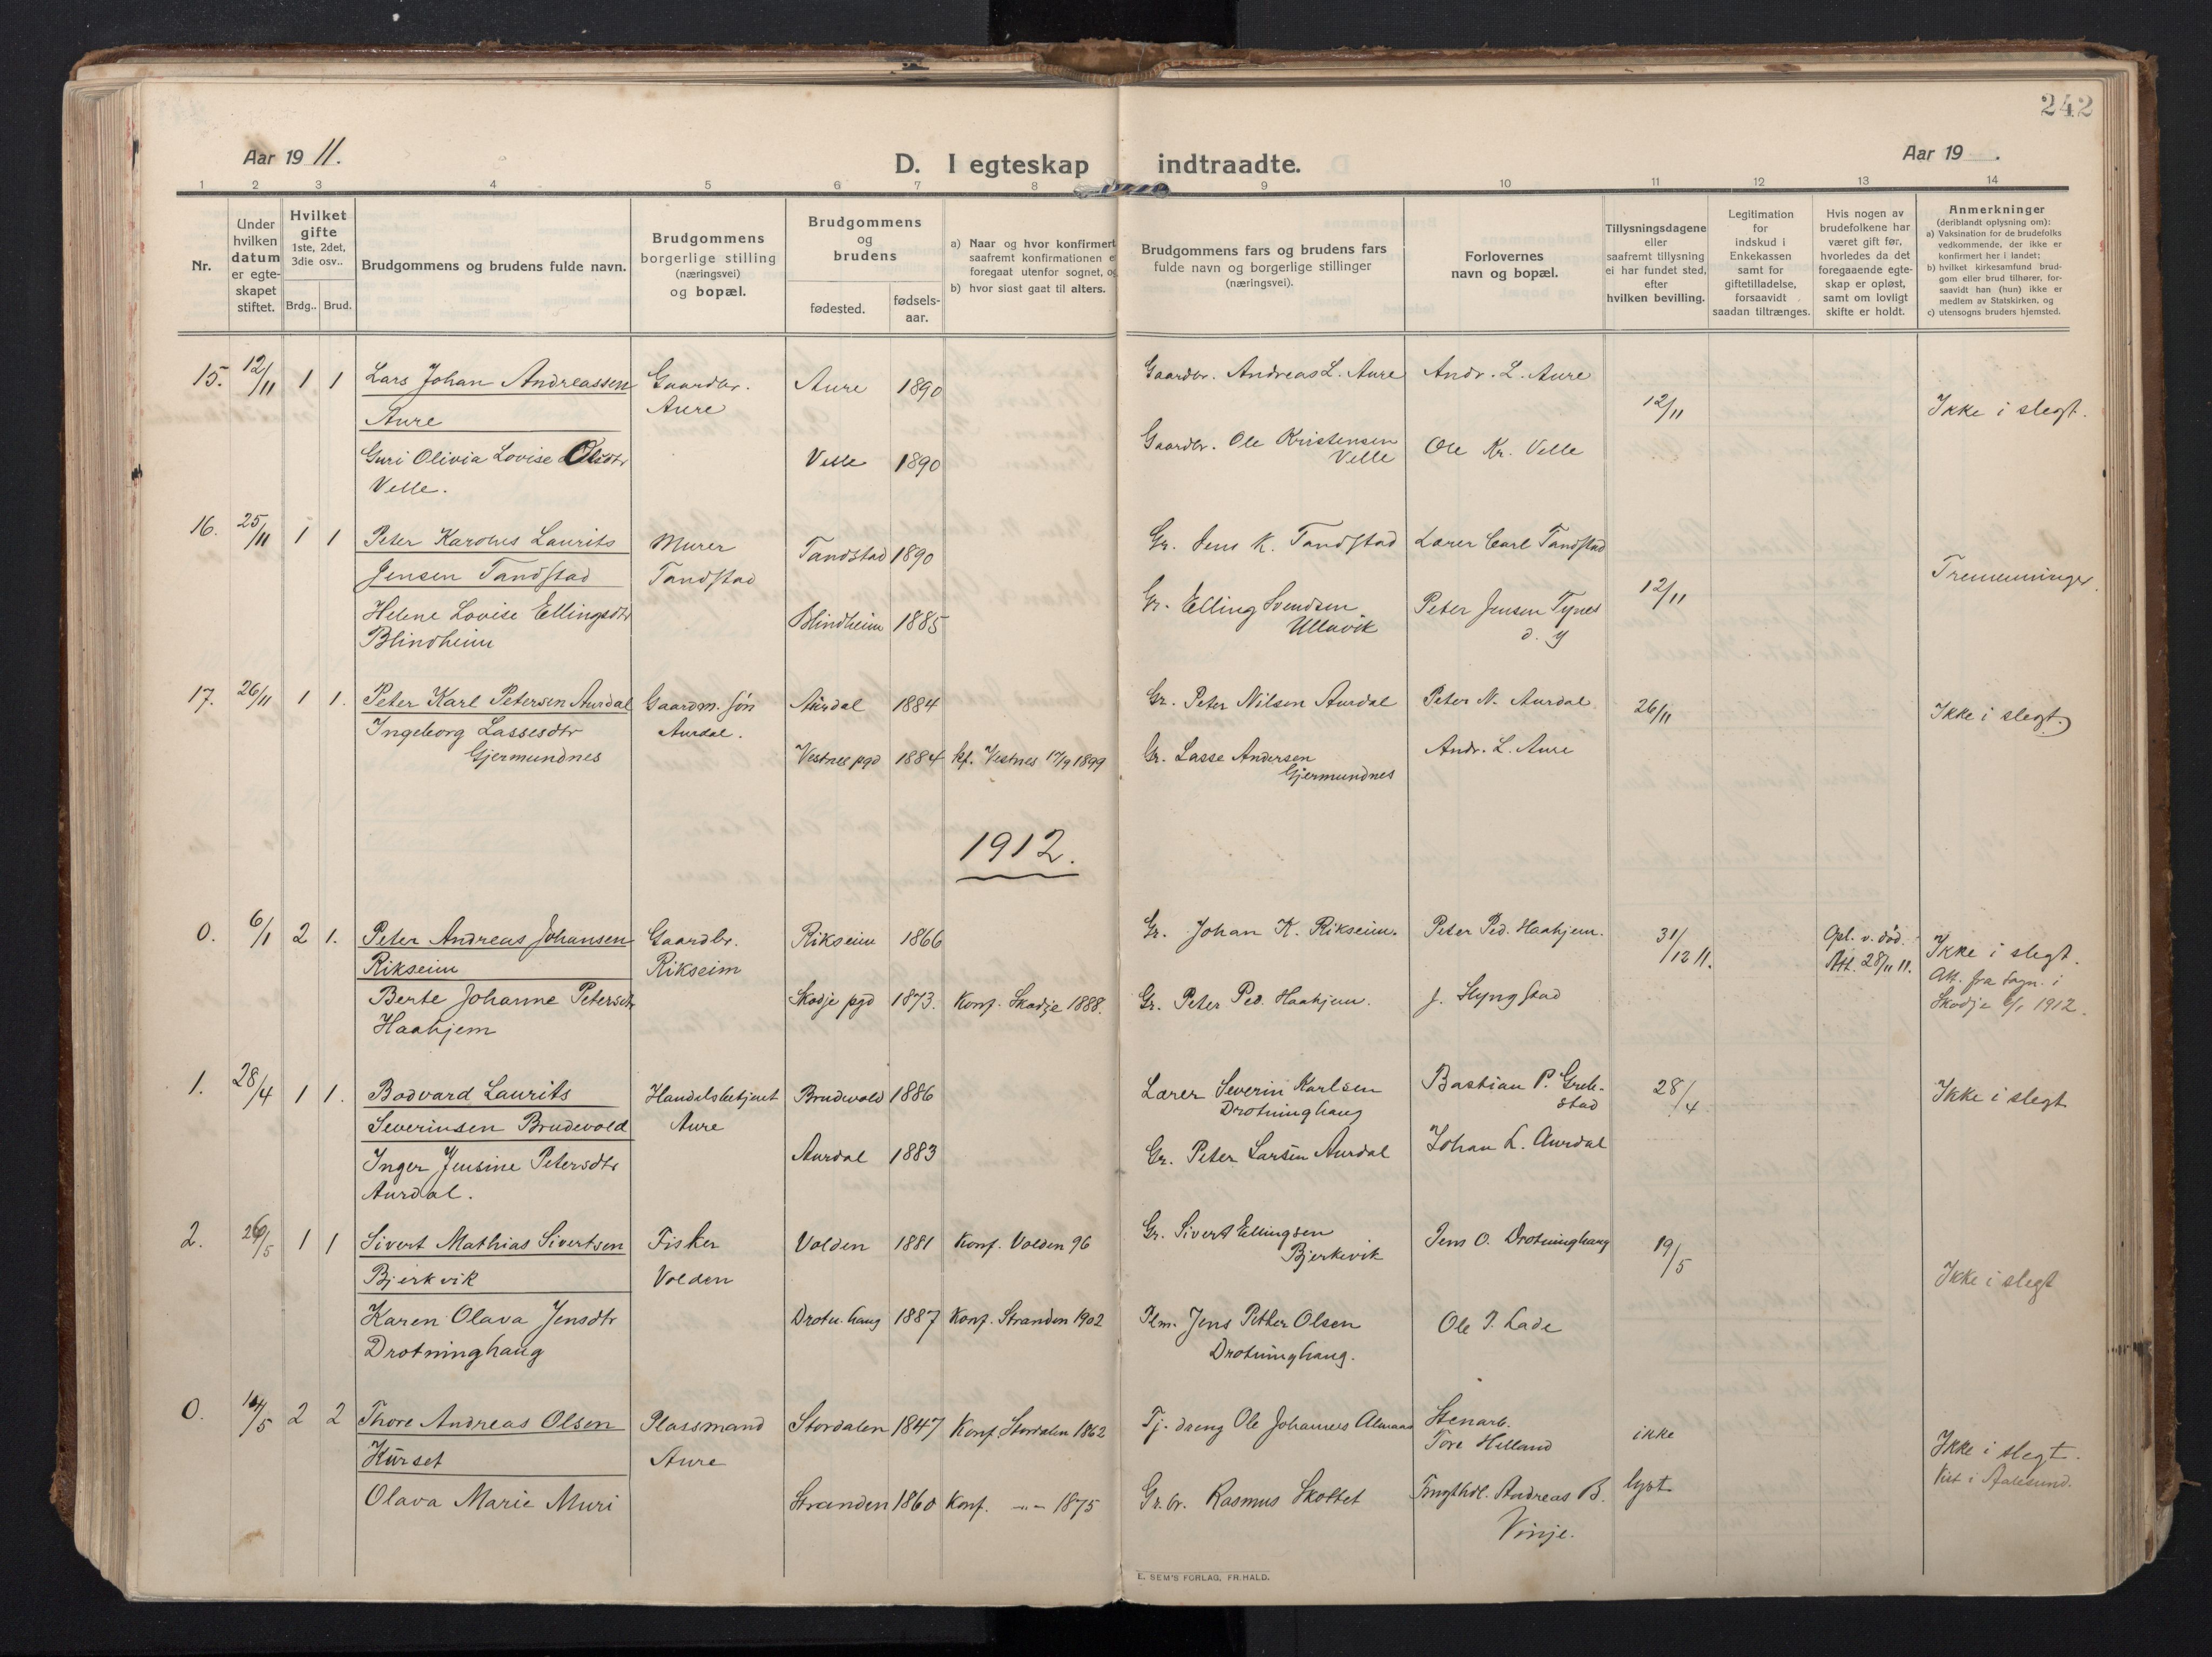 242
Aar 19 11.
D. I egteskap indtraadte.
Aar 19 .
1 2 3 4 5 6 7 8 9 10 11 12 13 14
Nr.
Under
hvilken
datum
er egte-
skapet
stiftet.
Hvilket
gifte
1ste, 2det,
3die osv..
Brdg.. Brud.
Brudgommens og brudens fulde navn.
Brudgommens
borgerlige stilling
(næringsvei)
og bopæl.
Brudgommens
og
brudens
fødested.
fødsels-
aar.
a) Naar og hvor konfirmert
saafremt konfirmationen e
foregaat utenfor sognet, og
b) hvor sidst gaat til alters.
Brudgommens fars og brudens fars
fulde navn og borgerlige stillinger
(næringsvei).
Forlovernes
navn og bopæl.
Tillysningsdagene
eller
saafremt tillysning
ei har fundet sted,
efter
hvilken bevilling.
Legitimation
for
indskud i
Enkekassen
samt for
giftetilladelse,
forsaavidt
saadan tiltrænges.
Hvis nogen av
brudefolkene har
været gift før,
hvorledes da det
foregaaende egte-
skap er opløst,
samt om lovligt
skifte er holdt.
Anmerkninger
(deriblandt oplysning om):
a) Vaksination for de brudefolks
vedkommende, der ikke er
konfirmert her i landet;
b) hvilket kirkesamfund brud-
gom eller brud tilhører, for-
saavidt han (hun) ikke er
medlem av Statskirken, og
c) utensogns bruders hjemsted.
15. 12/11 1 1 Lars Johan Andreassen Gaardbr. Aure 1890 Gaardbr. Andreas L. Aure Andr. L. Aure
Aure Aure 12/11 Ikke i slegt.
Guri Olivia Lovise Olsdtr Velle 1890 Gaardbr. Ole Kristensen Ole Kr. Velle
Velle. Velle
16. 25/11 1 1 Peter Karolus Laurits Murer Tandstad 1890 Gr. Jens K. Tandstad Lærer Carl Tandstad
Jensen Tandstad Tandstad 12/11 Tremenninger.
Helene Lovise Ellingsdtr Blindheim 1885 Gr. Elling Svendsen Peter Jensen Tynes
Blindheim Ullavik d. y
17. 26/11 1 1. Peter Karl Petersen Aurdal Gaardm. søn Aurdal 1884 Gr. Peter Nilsen Aurdal Peter N. Aurdal 26/11 Ikke i slegt.
Ingeborg Lassesdtr Aurdal.
Gjermundnes Vestnes pgd 1884 kf. Vestnes 17/9 1899 Gr. Lasse Andersen Andr. L. Aure
Gjermundnes
1912.
0. 6/1 2 1. Peter Andreas Johansen Gaardbr. Rikseim 1866 Gr. Johan K. Rikseim. Peter Ped. Haahjem. 31/12 11. Opl. v. død. Ikke i slegt.
Rikseim Rikseim Att. 28/11 11. Att. fra sogn. i
Berte Johanne Petersdtr Skodje pgd 1873. Konf. Skodje 1888. Gr. Peter Ped. Haahjem. J. Slyngstad Skodje 6/1 1912.
Haahjem
1. 28/4 1 1. Bodvard Laurits Handelsbetjent Brudevold 1886 Lærer Severin Karlsen Bastian P. Greb- 28/4 Ikke i slegt
Severinsen Brudevold Aure Drotninghaug stad
Inger Jensine Petersdtr Aurdal 1883 Gr. Peter Larsen Aurdal Johan L. Aurdal
Aurdal.
2. 26/5 1 1 Sivert Mathias Sivertsen Fisker Volden 1881 Konf. Volden 96 Gr. Sivert Ellingsen Jens O. Drotninghaug 19/5
Bjerkvik Volden Bjerkevik Ikke i slegt
Karen Olava Jensdtr Drotn. haug 1887 Konf. Stranden 1902 Plm. Jens Petter Olsen Ole J. Lade
Drotninghaug Drotninghaug.
0. /5 2 2 Thore Andreas Olsen Plassmand Stordalen 1847 Konf. Stordalen 1862 Tj. dreng Ole Johannes Almaas Stenarb. ikke
Kurset Aure Tore Helland Ikke i slegt.
Olava Marie Muri Stranden 1860 Konf. -"- 1875 Gr.br. Rasmus Skottet Andreas B. lyst Viet i Aalesund.
Vinje.
E. SEM'S FORLAG, FR.HALD.